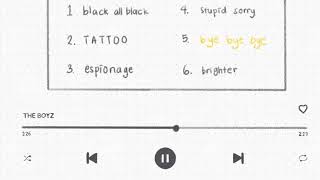 1 black all black
2. TATTOO
3. espionage
4. stupid sorry
5. bye bye bye
6. brighter
THE BOYZ
1:26
2:27